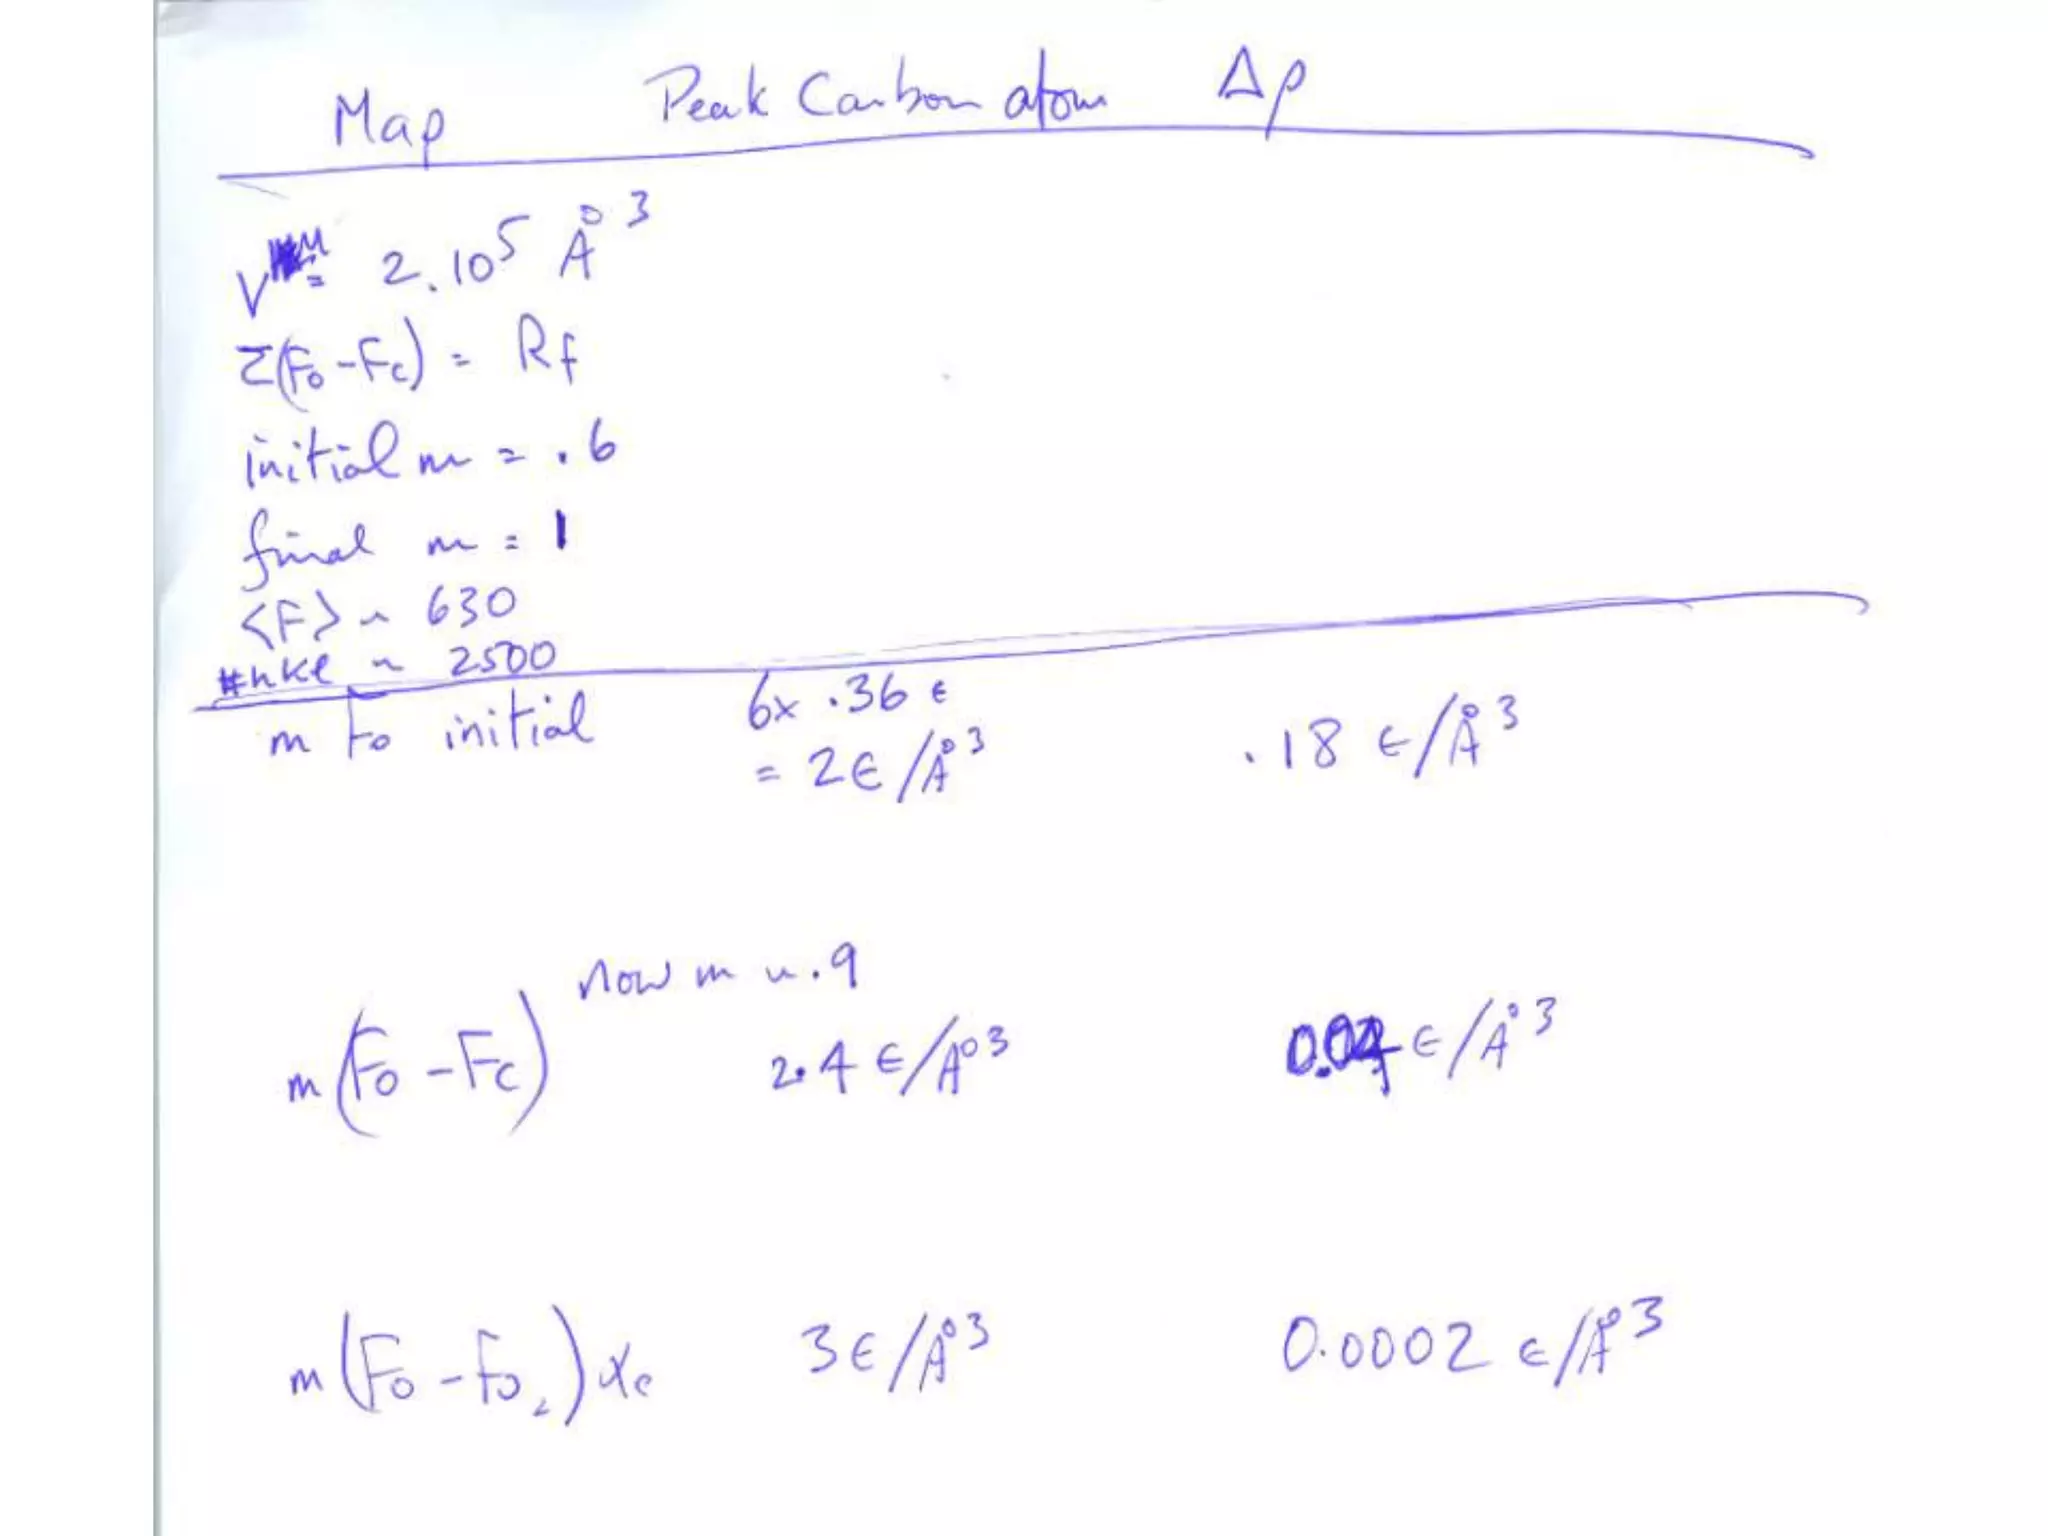 Map Peak Carbon atom Δρ
V = 2.10⁵ Å³
Σ(Fo-Fc) = Rf
initial m = .6
final m = 1
<F> ~ 630
#hkl ~ 2500
m Fo initial 6x .36 ϵ .18 ϵ/Å³
= 2ϵ/Å³
now m ~ .9
m(Fo-Fc) 2.4 ϵ/Å³ ϵ/Å³
m(Fo-Fo₂) αc 3ϵ/Å³ 0.0002 ϵ/Å³